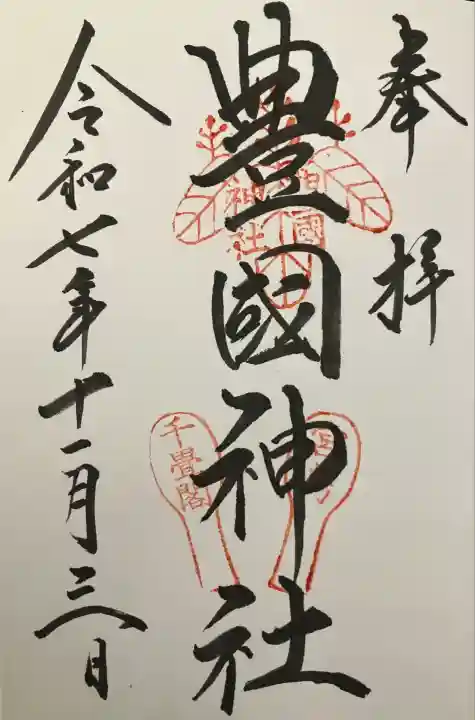 奉拝
豊國神社
令和七年十一月日
豊國
神社
宮島
千畳閣